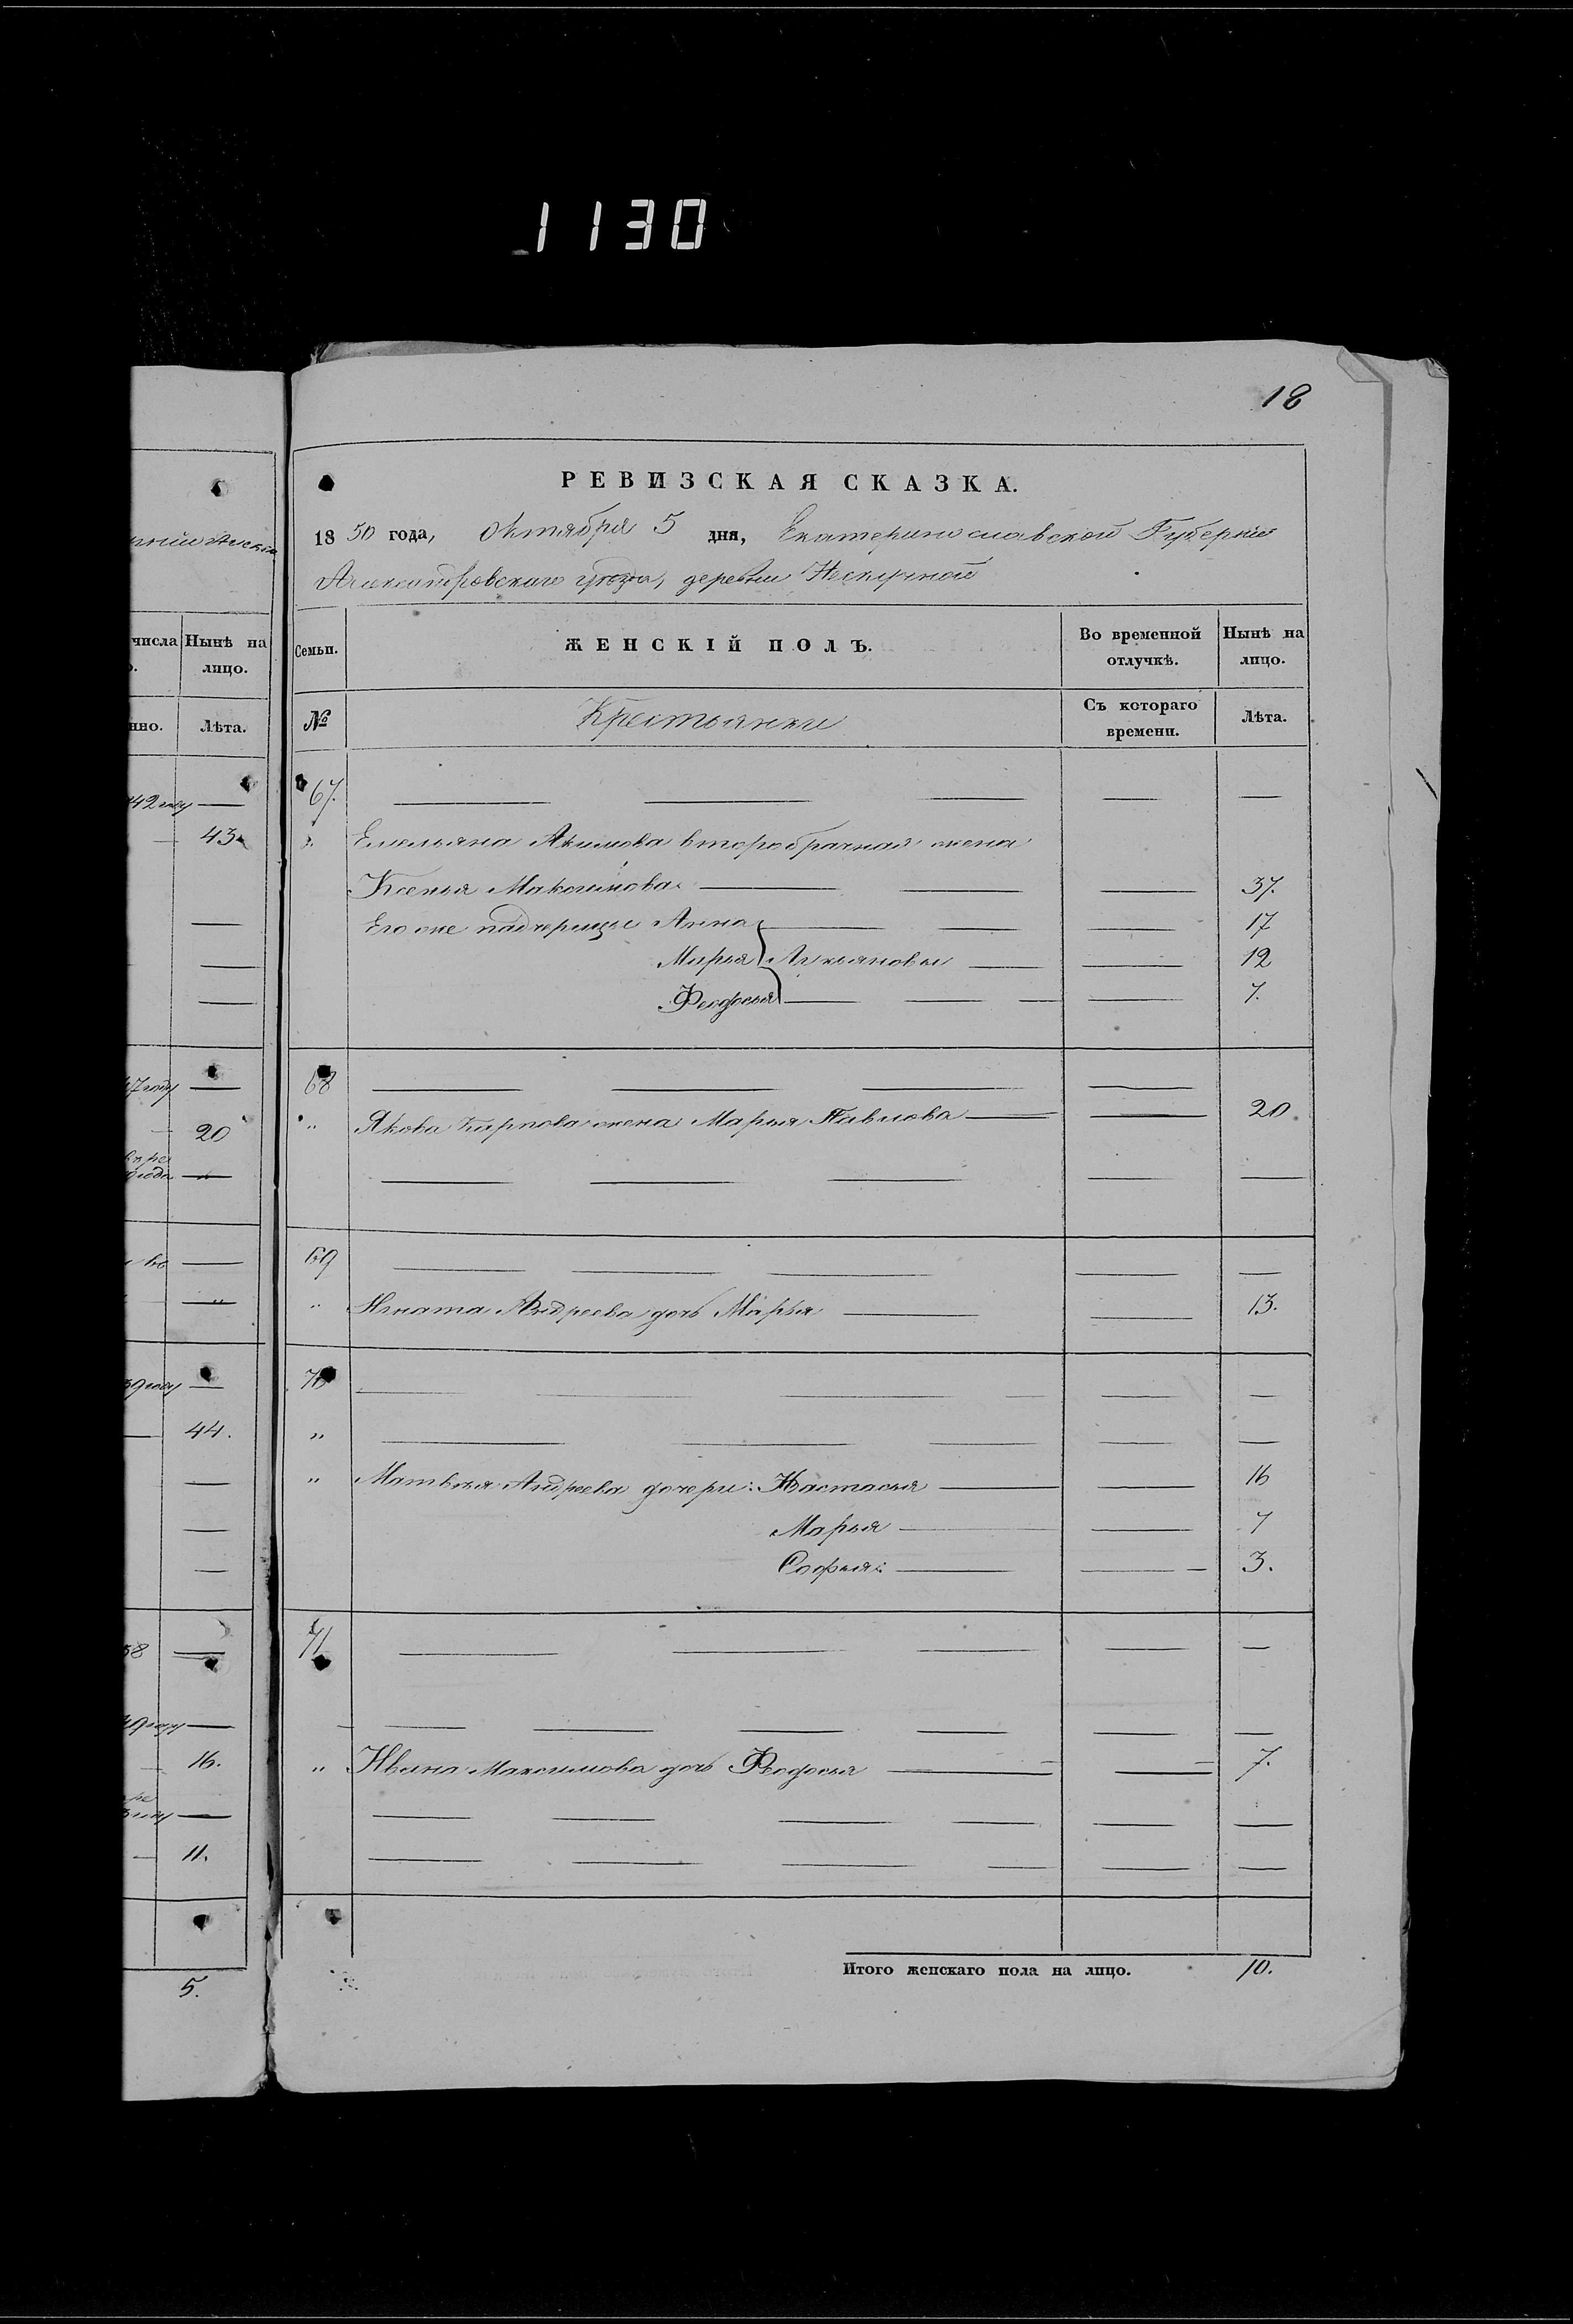 1130
18
РЕВИЗСКАЯ СКАЗКА.
1850 года, Октября 5 дня, Екатеринославской Губерніи
Александровскаго уѣзда, деревни Нескучной
числа Нынѣ на лицо.
нно. Лѣта.
42 году —
43.
47 году —
20
39 году —
44.
38 —
16.
11.
5.
Семьи. ЖЕНСКІЙ ПОЛЪ. Во временной отлучкѣ. Нынѣ на лицо.
№ Крестьянки Съ котораго времени. Лѣта.
67. — — — — —
" Емельяна Акимова второбрачная жена
Ксенья Максимова — — — 37.
Его же падчерицы Анна — — — 17
Марья Лукьяновы — — 12
Феодосья — — — — 7.
68 — — — —
" Якова Карпова жена Марья Павлова — — 20.
— — — — —
69 — — — — —
" Игната Андреева дочь Марья — — 13.
70 — — — — — —
" — — — — —
" Матвѣя Андреева дочери: Настасья — — 16
Марья — — 7
Софья: — — — 3.
71 — — — — —
— — — — — — —
" Ивана Максимова дочь Феодосья — — 7.
— — — — — —
— — — — — —
Итого женскаго пола на лицо. 10.